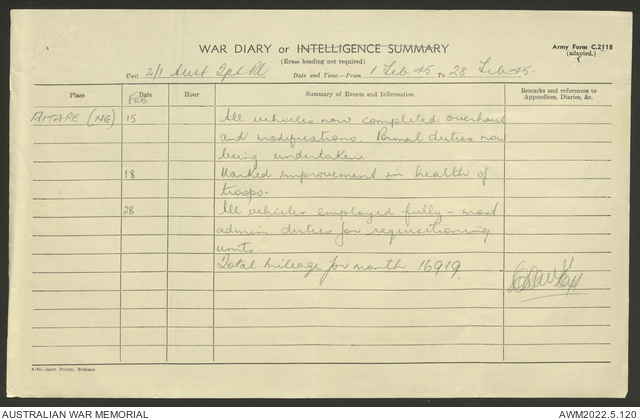 WAR DIARY or INTELLIGENCE SUMMARY
(Erase heading not required)
Army Form C.2118
(adapted.)
Unit 2/1 Aust 2pl Pl Date and Time—From 1 Feb 45 To 28 Feb 45.
Place Date Hour Summary of Events and Information Remarks and references to Appendices, Diaries, &c.
FEB
AITAPE (NG) 15 All vehicles now completed overhaul
and modifications. Normal duties now
being undertaken.
18 Marked improvement in health of
troops.
28 All vehicles employed fully – most
admin duties for requisitioning
units.
Total mileage for month 16919.
4-43—Govt. Printer, Brisbane
AUSTRALIAN WAR MEMORIAL AWM2022.5.120